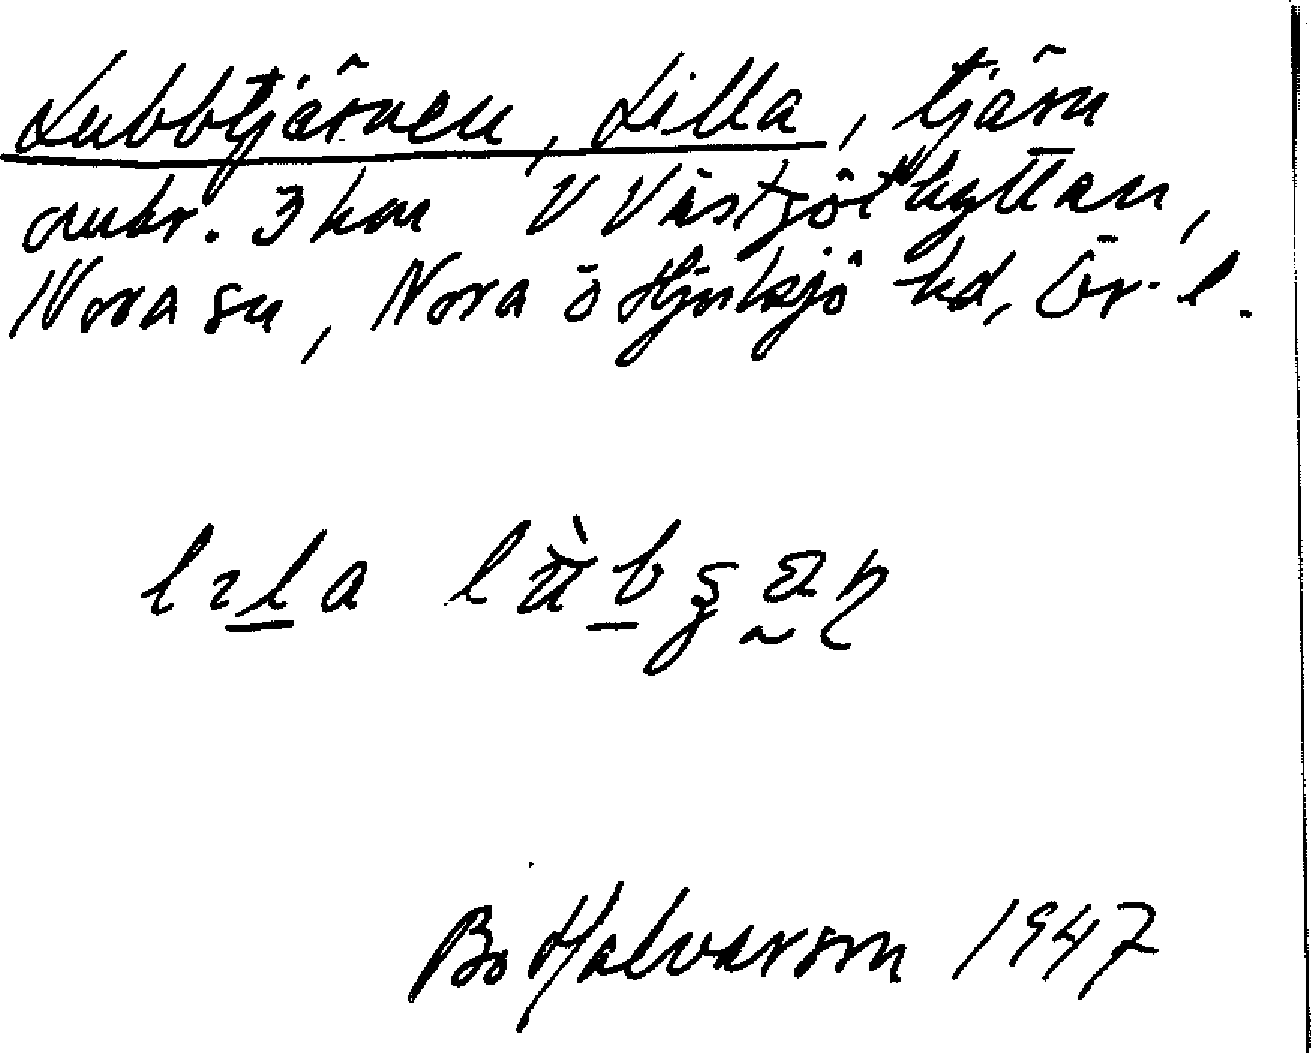 Lubbtjärnen, Lilla, tjärn
omkr. 3 km V Västgöthyttan,
Nora sn, Nora o Hjulsjö hd, Ör. l.
Bo Halvarson 1947